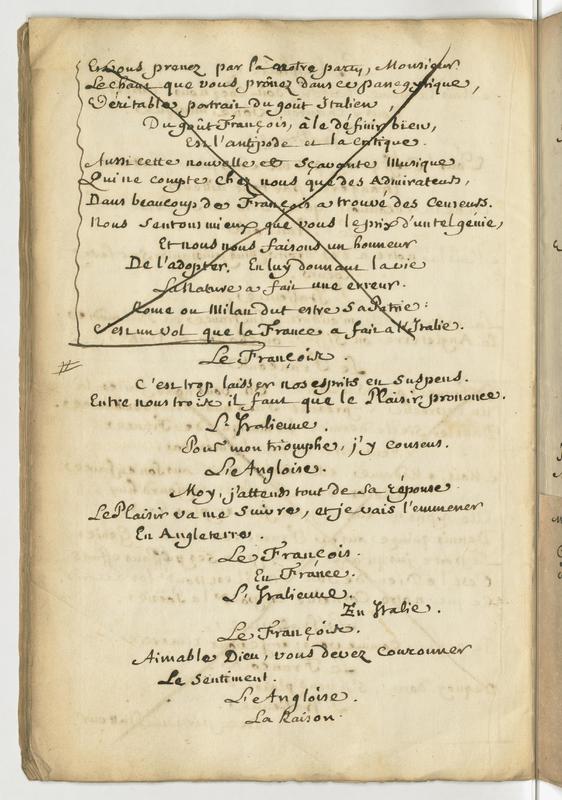 Et vous prenez par là notre party, Monsieur
Le chant que vous prônez dans ce panegyrique,
Véritable portrait du goût Italien,
Du goût François, à le définir bien,
Est l'antipode et la critique.
Aussi cette nouvelle et sçavante Musique
Qui ne compte chez nous que des Admirateurs,
Dans beaucoup de François a trouvé des Censeurs.
Nous sentons mieux que vous le prix d'un tel génie,
Et nous nous faisons un honneur
De l'adopter. En luy donnant la vie
La Nature a fait une erreur.
Rome ou Milan dut estre Sa Patrie:
C'est un vol que la France a fait a l'Italie.
Le François.
C'est trop laisser nos esprits en suspens.
Entre nous trois il faut que le Plaisir prononce.
L'Italienne.
Pour mon triomphe, j'y consens.
L'Angloise.
Moy, j'attends tout de sa réponse
Le Plaisir va me suivre, et je vais l'emmener
En Angleterre.
Le François.
En France.
L'Italienne.
En Italie.
Le François.
Aimable Dieu, vous devez couronner
Le sentiment.
L'Angloise.
La Raison.